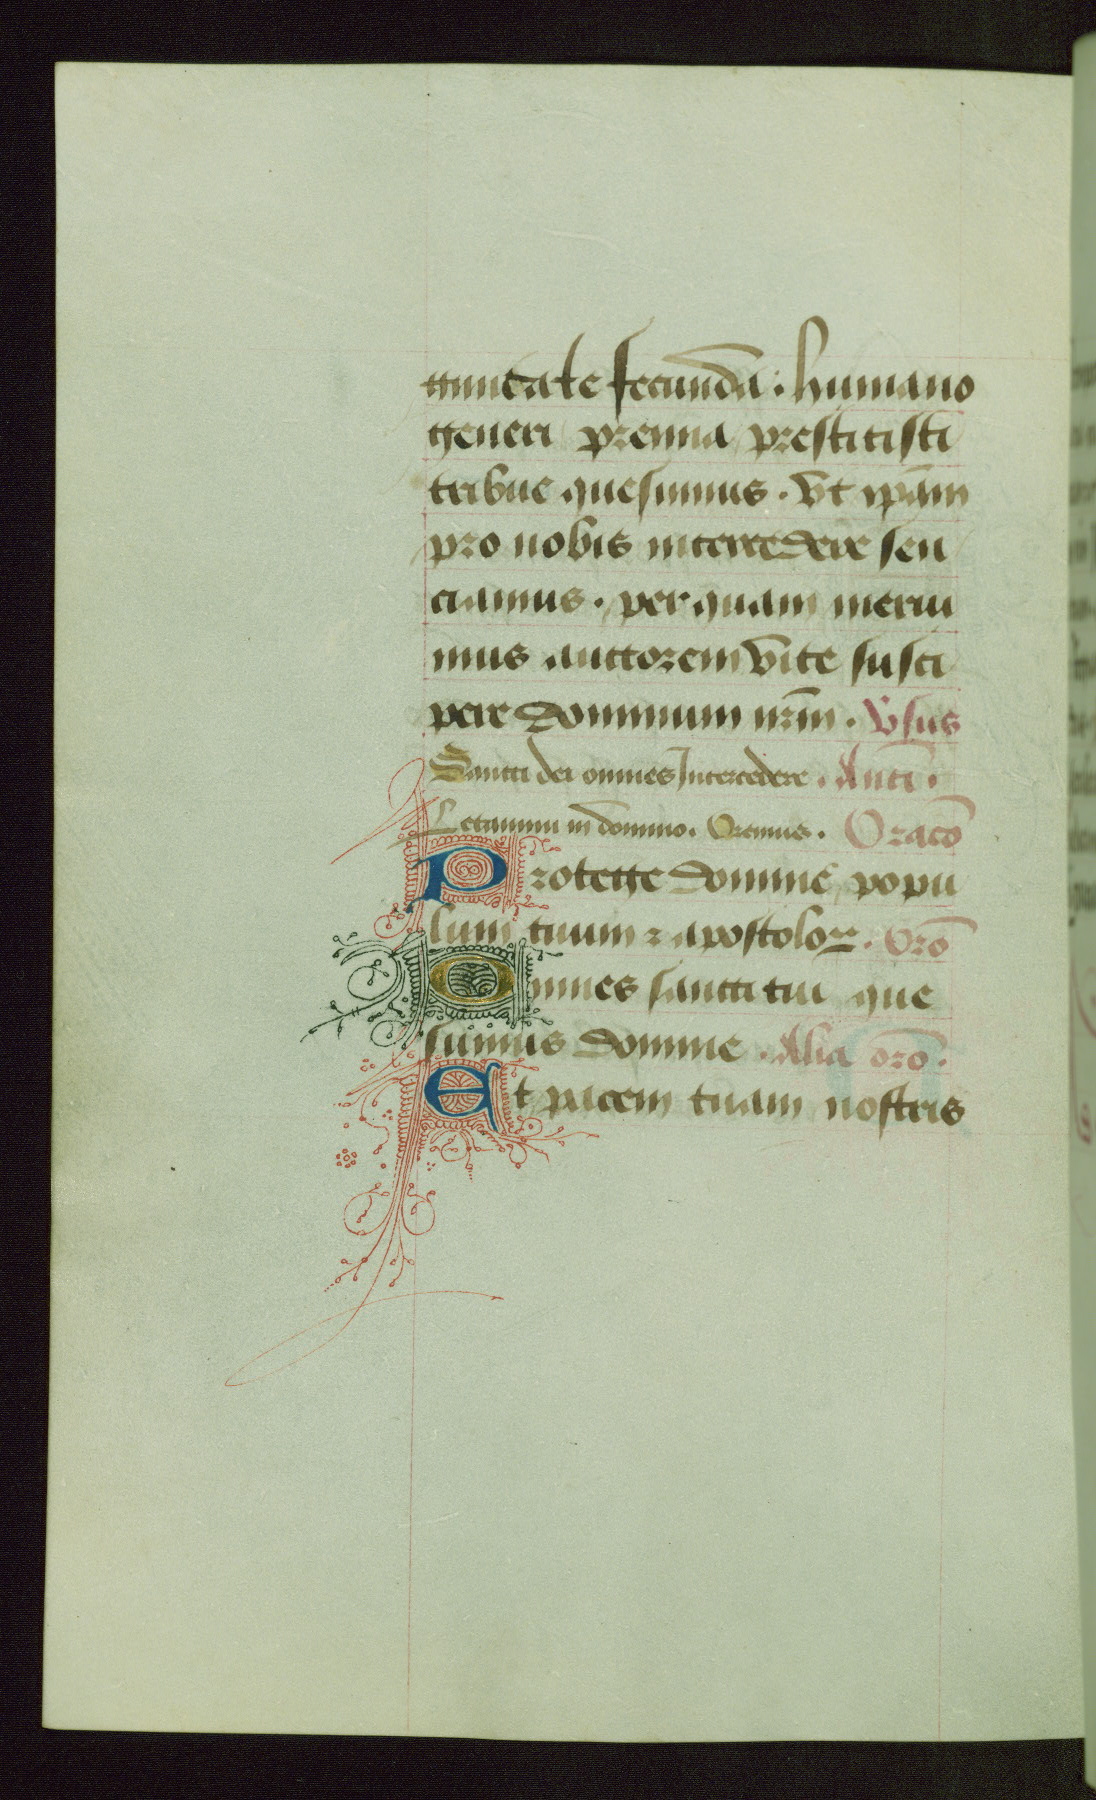 ginitate fecunda : humano
generi premia prestitisti
tribue quesumus . Vt ip̄am
pro nobis intercedere sen
ciamus . per quam merui
mus auctorem vite susci
pere dominum nr̄m . V̄sus
Sancti dei omnes Intercedere . Anti .
Letamini in domino . Oremus . Oracō
Protege domine popu
lum tuum ⁊ apostoloꝝ . Orō
Omnes sancti tui que
sumus domine . Alia orō .
Et pacem tuam nostris